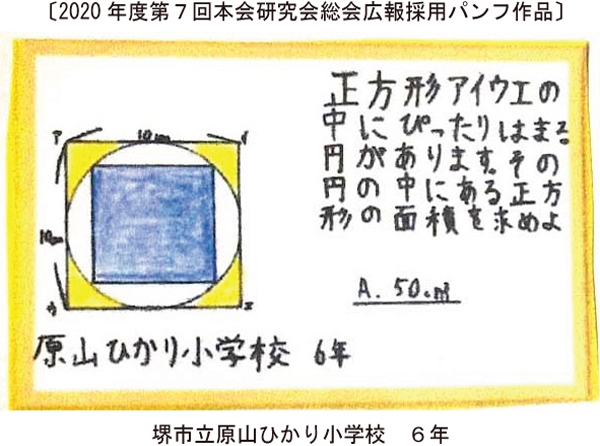 〔2020年度第7回本会研究会総会広報採用パンフ作品〕
正方形アイウエの
中にぴったりはまる
円があります。その
円の中にある正方
形の面積を求めよ
ア
10cm
イ
10cm
ウ
エ
A. 50c㎡
原山ひかり小学校 6年
堺市立原山ひかり小学校 6年